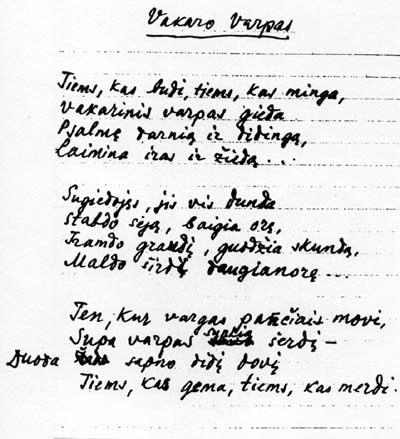 Vakaro varpas
Tiems, kas budi, tiems, kas minga,
vakarinis varpas gieda
Psalmę darnią ir didingą,
Laimina iras ir žiedą...
Sugiedojęs, jis vis dunda
Stabdo sėją, baigia orę,
Tramdo graudį, guodžia skundą,
Maldo širdį daugianorę...
Ten, kur vargas pančiais movi,
Supa varpas sunkią šerdį –
Duoda sapno didį dovį
Tiems, kas gema, tiems, kas merdi.